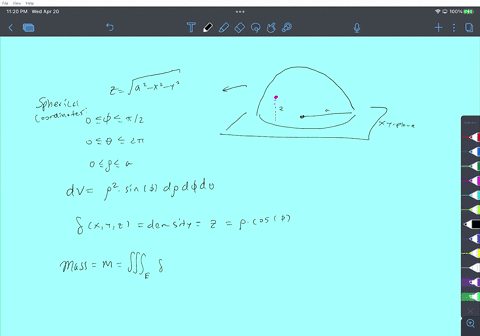 File View
11:20 PM Wed Apr 20
100%
z = √(a² - x² - y²)
Spherical
Coordinates:
0 ≤ φ ≤ π/2
0 ≤ θ ≤ 2π
0 ≤ ρ ≤ a
z
a
xy-plane
dV = ρ² · sin(φ) dρ dφ dθ
δ(x,y,z) = density = z = ρ · cos(φ)
Mass = m = ∭_E δ